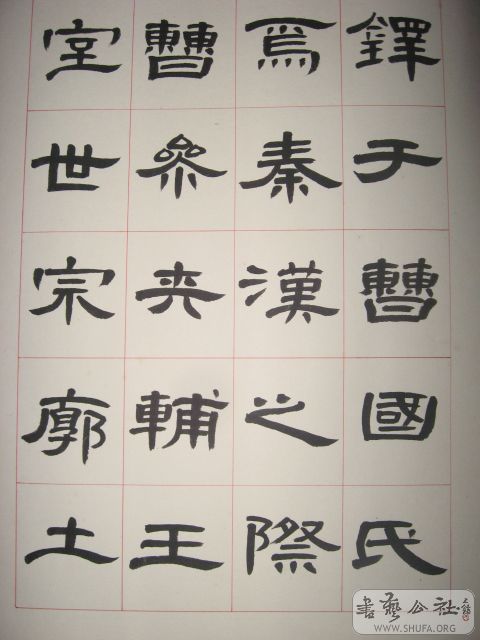 鐸于曹國氏
焉秦漢之際
曹參夾輔王
室世宗廓土
書藝公社
WWW.SHUFA.ORG